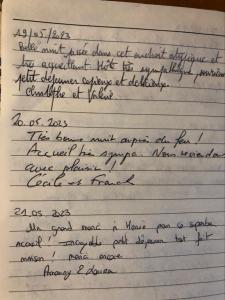 19/05/2023
Belle nuit passée dans cet endroit atypique et
très accueillant. Hôte très sympathique,
petit déjeuner copieux et délicieux.
Christophe et
20.05.2023
Très bonne nuit auprès du feu !
Accueil très sympa. Nous reviendrons
avec plaisir !
Cécile et Franck
21.05.2023
Un grand merci à pour ce superbe
accueil ! Incroyable petit déjeuner tout fait
maison ! merci encore
&